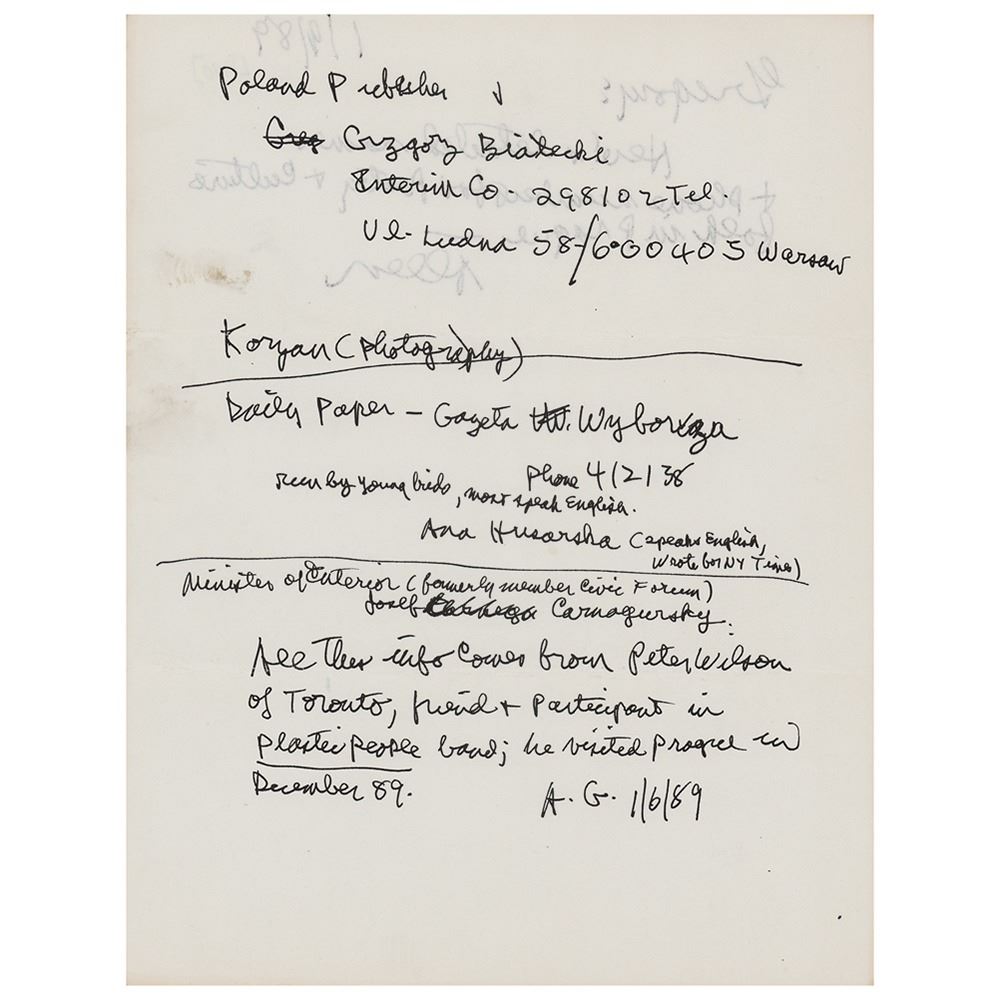 Poland Publisher ↓
Greg Grzgorz Białecki
Interim Co. 298102 Tel.
Ul. Ludna 58/6 • 00405 Warsaw
Koryan (Photography)
Daily Paper — Gazeta W. Wyborcza
Phone 412138
run by young birds, most speak English.
Ana Husarska (speaks English,
wrote for NY Times)
Minister of Interior (formerly member Civic Forum)
Josef Carnagursky.
All this info comes from Peter Wilson
of Toronto, friend + participant in
Plastic People band; he visited Prague in
December 89.
A. G. 1/6/89